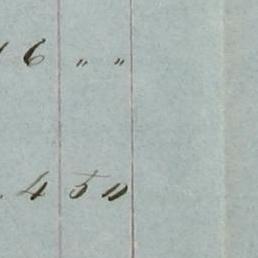 16 " "
4 50